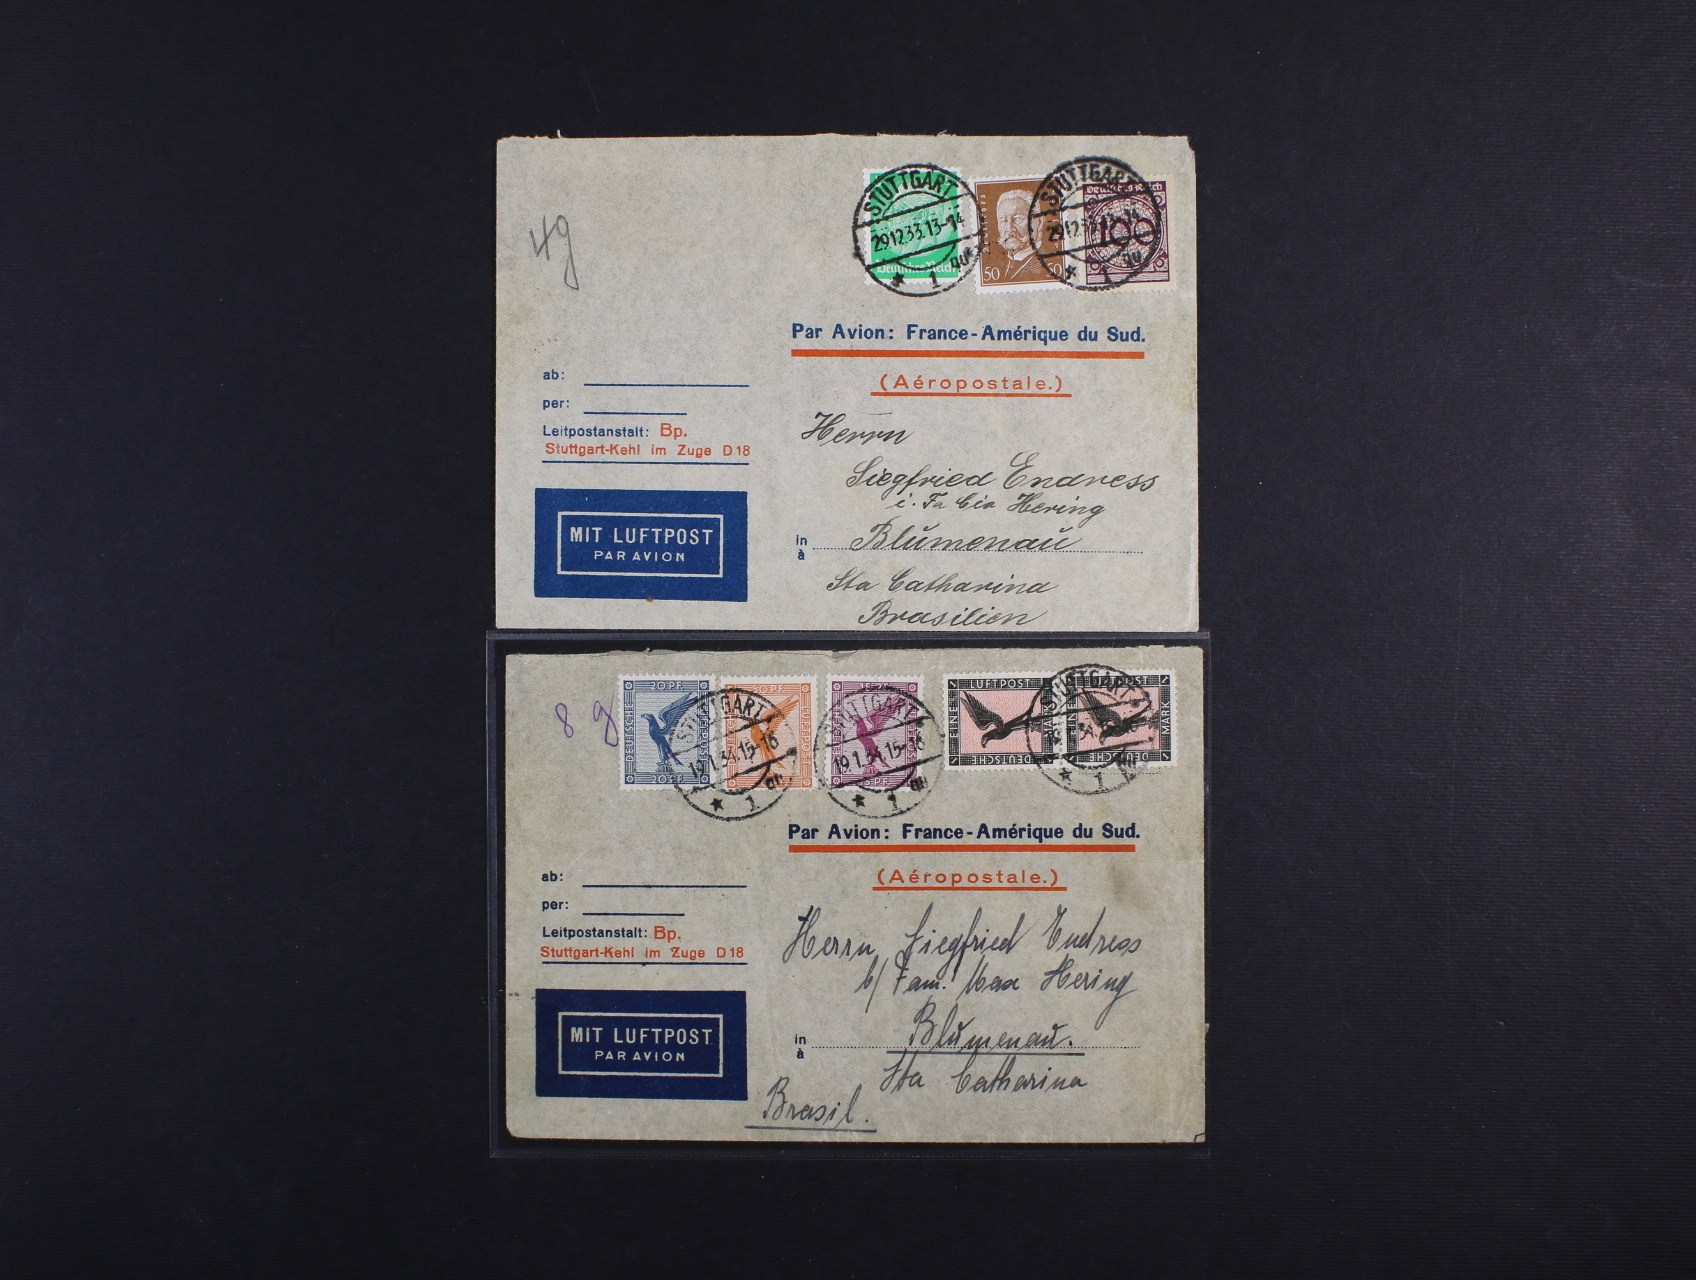 STUTTGART
29.12.33.13-14
★ 1 au
Deutsches Reich
50 50
STUTTGART
★ 1 au
Deutsches Reich
100
4g
Par Avion: France-Amérique du Sud.
(Aéropostale.)
ab:
per:
Leitpostanstalt: Bp.
Stuttgart-Kehl im Zuge D 18
MIT LUFTPOST
PAR AVION
Herrn
Siegfried Endress
i. Fa Cia Hering
in Blumenau
à
Sta Catharina
Brasilien
8 g
20 PF.
DEUTSCHE
20 PF.
STUTTGART
19.1.34.15-16
★ 1 au
STUTTGART
19.1.34.15-16
★ 1 au
LUFTPOST
EINE MARK
DEUTSCHE
STUTTGART
MARK
DEUTSCHE
★ 1
Par Avion: France-Amérique du Sud.
(Aéropostale.)
ab:
per:
Leitpostanstalt: Bp.
Stuttgart-Kehl im Zuge D 18
MIT LUFTPOST
PAR AVION
Herrn Siegfried Endress
b/ Fam. Max Hering
in Blumenau.
à
Sta Catharina
Brasil.